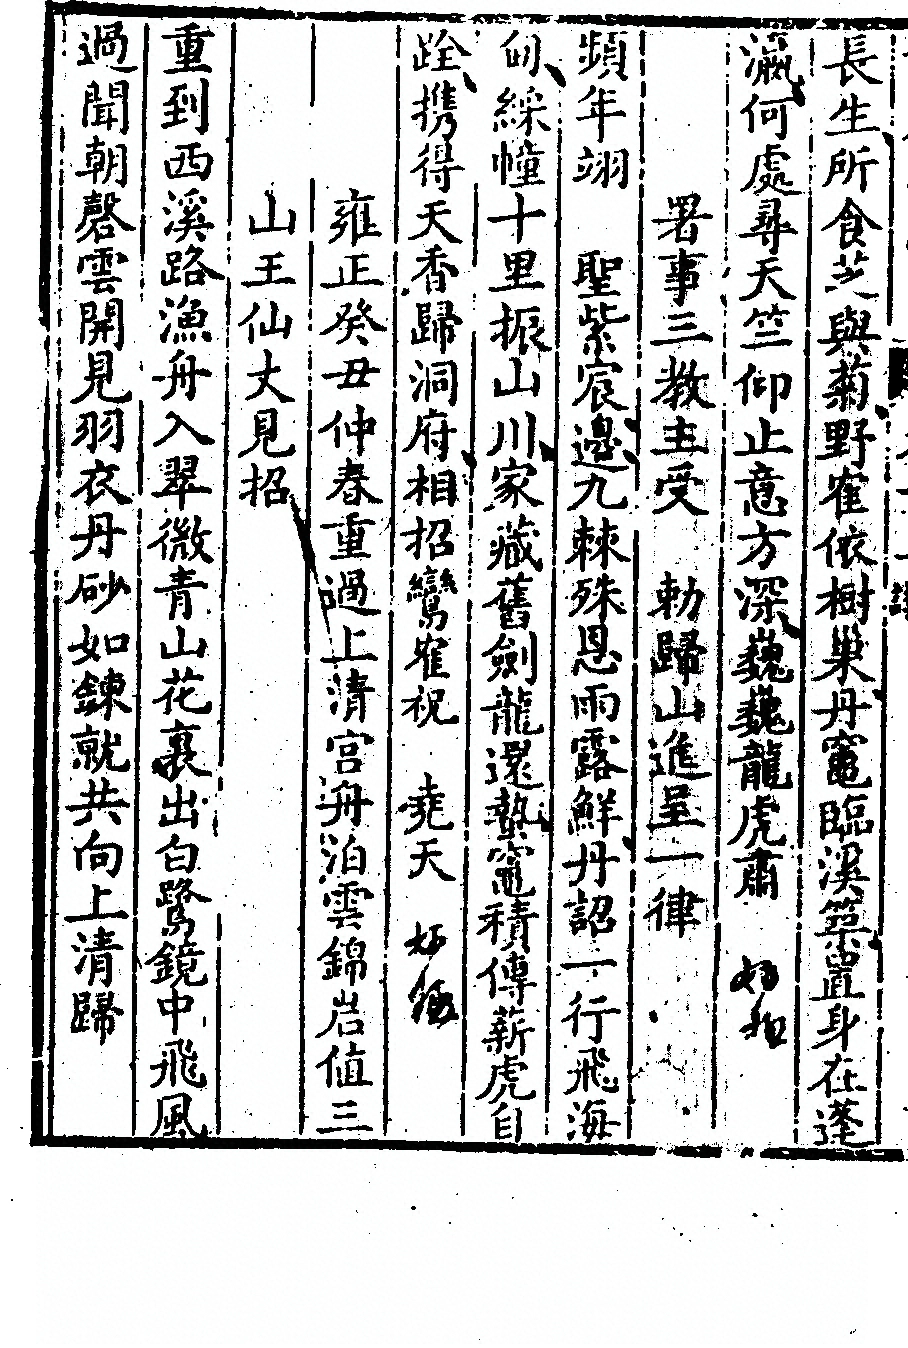 長生所食芝與菊野隺依樹巢丹竃臨溪築置身在蓬
瀛何處尋天竺仰止意方深巍巍龍虎肅
署事三教主受 勅歸山進呈一律
頻年翊 聖紫宸邊九棘殊恩雨露鮮丹詔一行飛海
綵幢十里振山川家藏舊劍龍還蟄竃積傳薪虎自
跧携得天香歸洞府相招鸞隺祝 堯天
雍正癸丑仲春重過上清宮舟泊雲錦岩値三
山王仙丈見招
重到西溪路漁舟入翠微青山花裏出白鷺鏡中飛風
過聞朝磬雲開見羽衣丹砂如鍊就共向上清歸